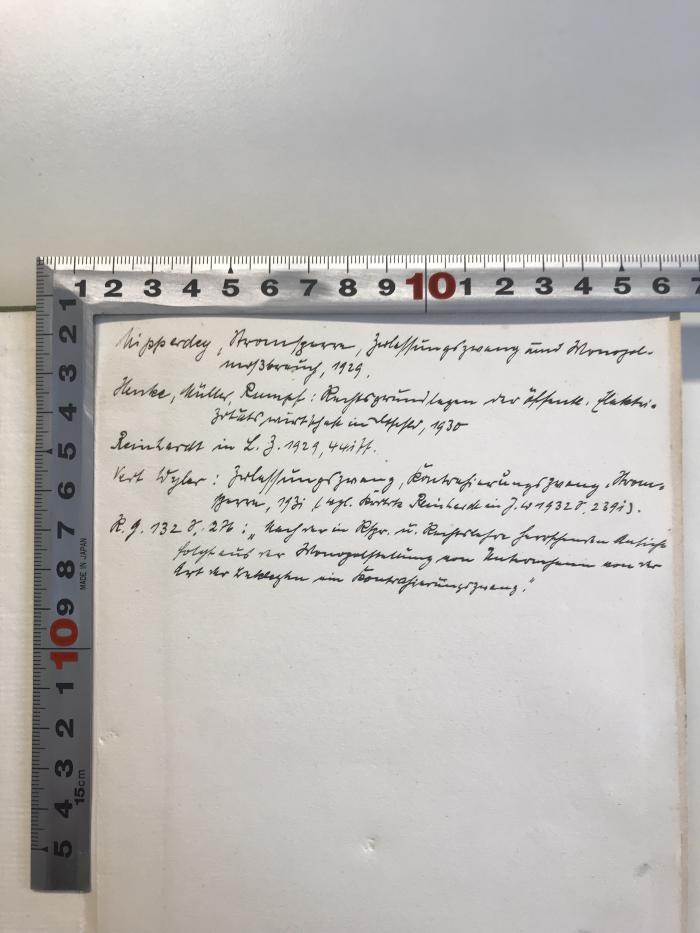 1 2 3 4 5 6 7 8 9 10 1 2 3 4 5 6 7
1 2 3 4 5 6 7 8 9 10 1 2 3 4 5
MADE IN JAPAN
15cm
Nipperdey, Stromsperre, Zulassungszwang und Monopol-
mißbrauch, 1929.
Henke, Müller, Rumpf: Rechtsgrundlagen der öffentl. Elektri-
zitätswirtschaft in Deutschld, 1930
Reinhardt in L. Z. 1929, 441ff.
Wyler: Zulassungszwang, Kontrahierungszwang, Strom-
sperre, 1931 (vgl. Kritik Reinhardt in J.W 1932 S. 2391).
R. G. 132 S. 276: „Nach der in Rspr. u. Rechtslehre herrschenden Ansicht
folgt aus der Monopolstellung von Unternehmen von der
Art der Beklagten ein Kontrahierungszwang."